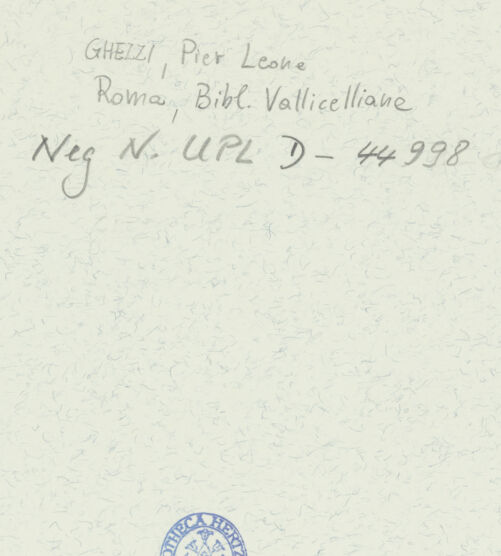 GHEZZI, Pier Leone
Roma, Bibl. Vallicelliana
Neg N. UPL D - 44998
OTHECA HERTZ